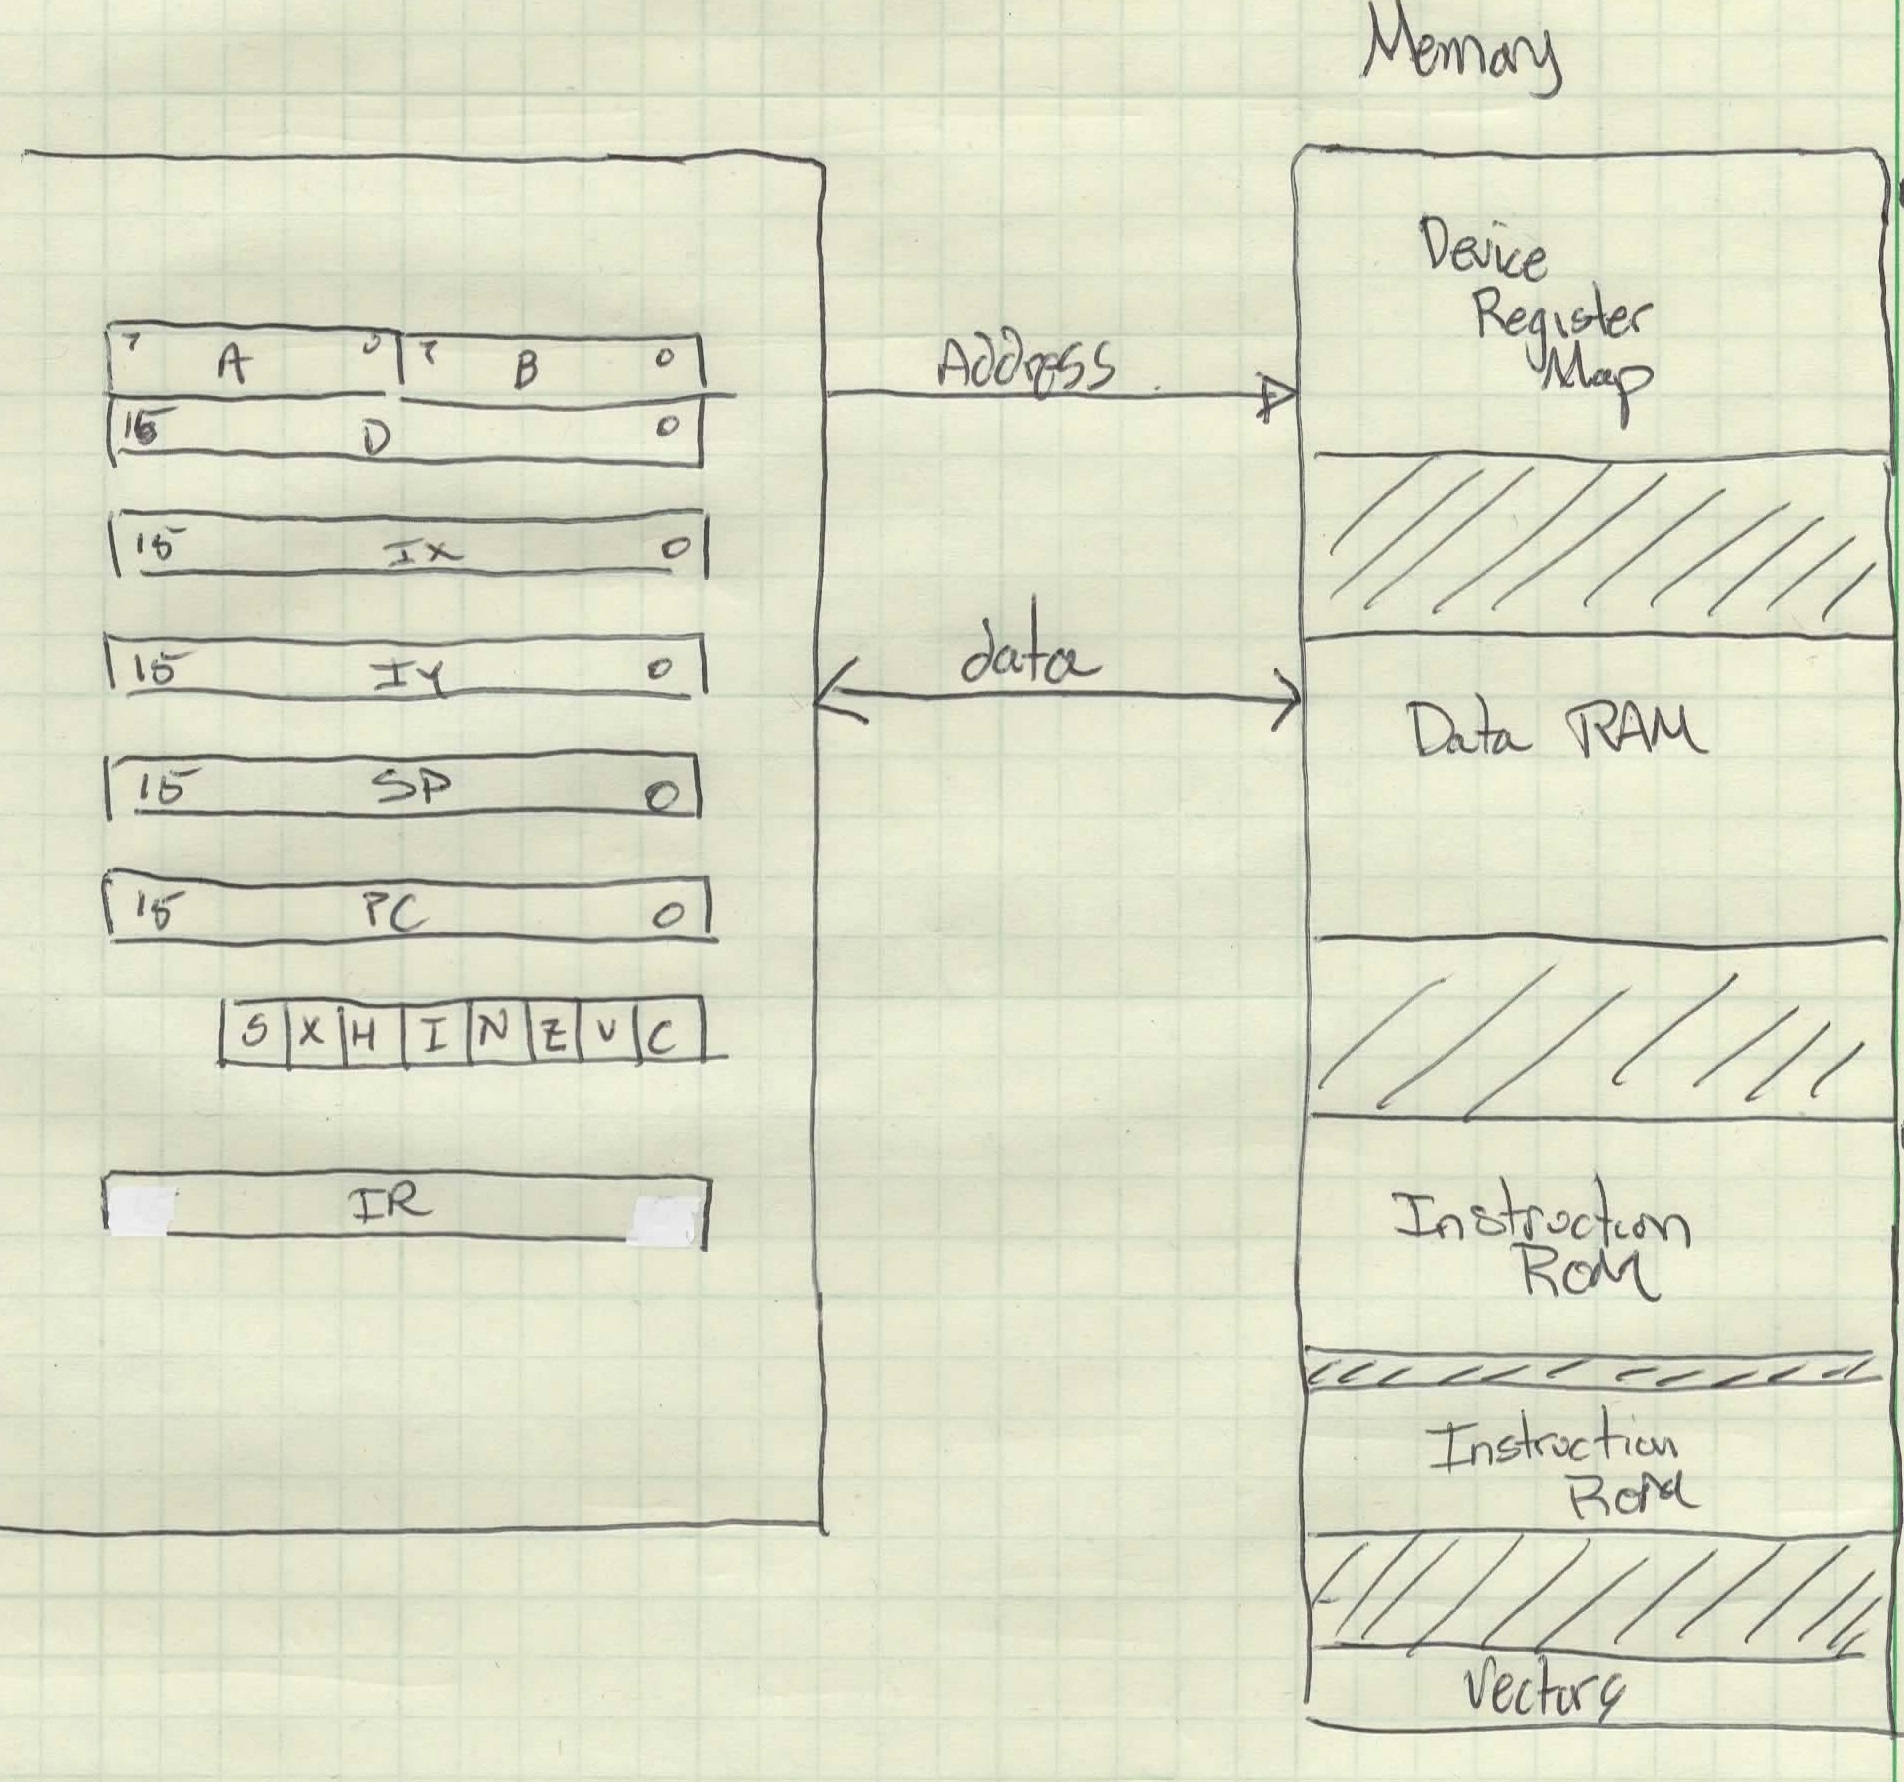 Memory
7 A 0 7 B 0
15 D 0
15 IX 0
15 IY 0
15 SP 0
15 PC 0
S X H I N Z V C
IR
Address
data
Device
Register
Map
Data RAM
Instruction
ROM
Instruction
ROM
Vectors